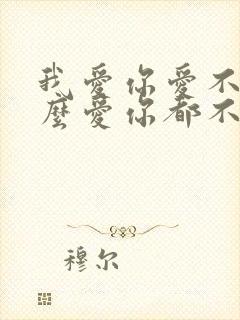 我愛你愛不
麼愛你都不
穆尔